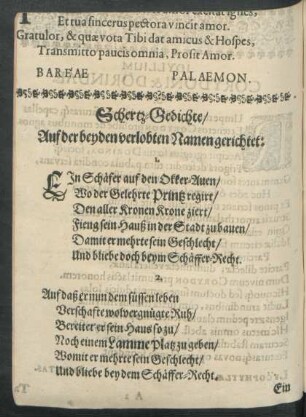 Et tua sincerus pectora vincit amor.
Gratulor, & quæ vota Tibi dat amicus & Hospes,
Transmitto paucis omnia. Prosit Amor.
BAREAE PALAEMON.
Schertz-Gedichte/
Auf der beyden verlobten Namen gerichtet:
1.
EIn Schäfer auf den Okker-Auen/
Wo der Gelehrte Printz regirt/
Den aller Kronen Krone ziert/
Fieng sein Hauß in der Stadt zu bauen/
Damit er mehrte sein Geschlecht/
Und bliebe doch beym Schäffer-Recht.
2.
Auf daß er nun dem süssen leben
Verschafte wolvergnügte Ruh/
Bereitet er sein Haus so zu/
Noch einem Lamme Platz zu geben/
Womit er mehrte sein Geschlecht/
Und bliebe bey dem Schäffer-Recht.
Ein